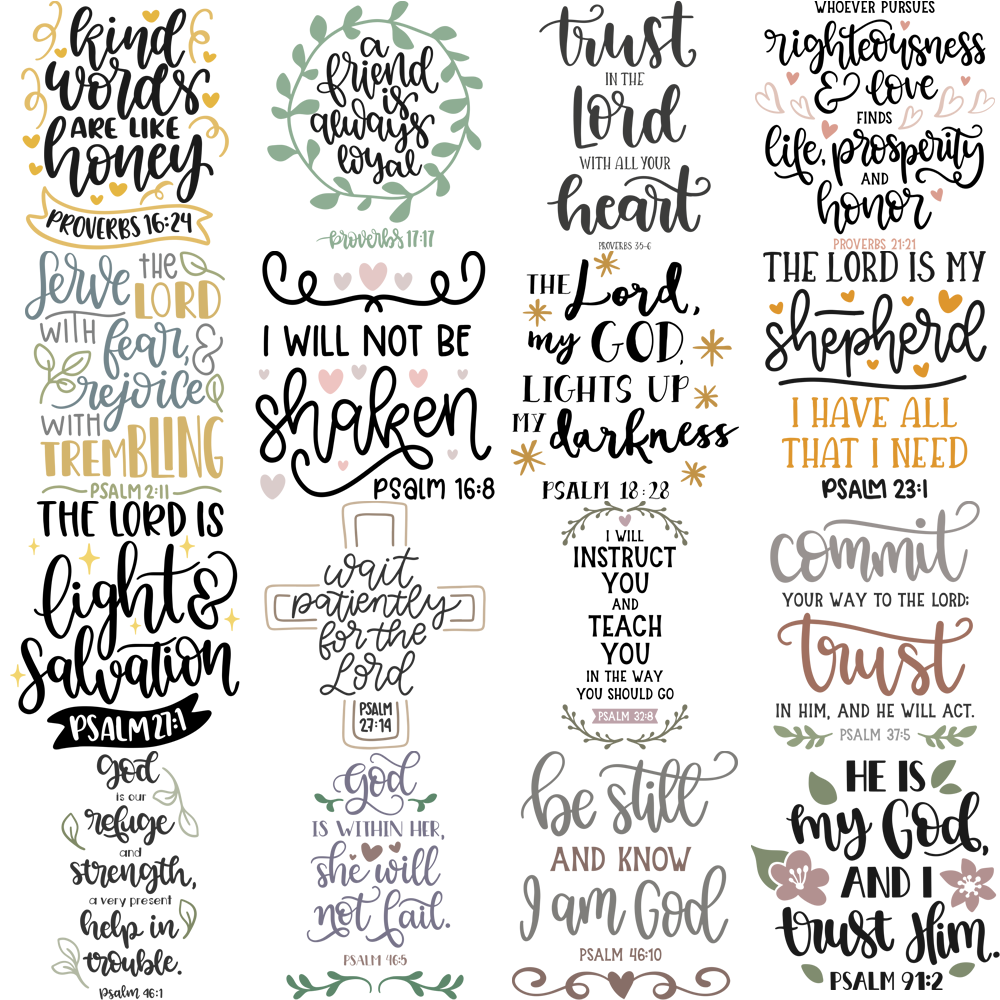 kind
words
ARE LIKE
honey
PROVERBS 16:24
a
friend
is
always
loyal
proverbs 17:17
trust
IN THE
Lord
WITH ALL YOUR
heart
PROVERBS 3:5-6
WHOEVER PURSUES
righteousness
& love
FINDS
life, prosperity
AND
honor
PROVERBS 21:21
Serve THE
LORD
WITH fear, &
rejoice
WITH
TREMBLING
PSALM 2:11
I WILL NOT BE
shaken
PSALM 16:8
THE Lord,
my GOD,
LIGHTS UP
MY darkness
PSALM 18:28
THE LORD IS MY
shepherd
I HAVE ALL
THAT I NEED
PSALM 23:1
THE LORD IS
light &
Salvation
PSALM 27:1
wait
patiently
for the
Lord
PSALM
27:14
I WILL
INSTRUCT
YOU
AND
TEACH
YOU
IN THE WAY
YOU SHOULD GO
PSALM 32:8
commit
YOUR WAY TO THE LORD;
trust
IN HIM, AND HE WILL ACT.
PSALM 37:5
God
is our
refuge
and
strength,
a very present
help in
trouble.
Psalm 46:1
God
IS WITHIN HER,
she will
not fail.
PSALM 46:5
be still
AND KNOW
I am God
PSALM 46:10
HE IS
my God,
AND I
trust Him.
PSALM 91:2